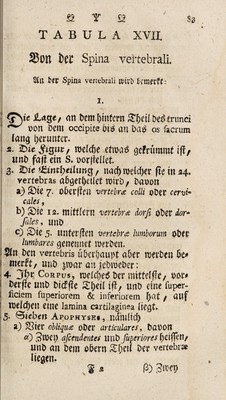 83
TABULA XVII.
Von der Spina vertebrali.
An der Spina vertebrali wird bemerkt:
1.
Die Lage, an dem hintern Theil des trunci
von dem occipite bis an das os sacrum
lang herunter.
2. Die Figur, welche etwas gekrümmt ist,
und fast ein S. vorstellet.
3. Die Eintheilung, nach welcher sie in 24.
vertebras abgetheilet wird, davon
a) Die 7. obersten vertebræ colli oder cervi-
cales,
b) Die 12. mittlern vertebræ dorsi oder dor-
sales, und
c) Die 5. untersten vertebræ lumborum oder
lumbares genennet werden.
An den vertebris überhaupt aber werden be-
merkt, und zwar an jedweder:
4. Ihr CORPUS, welches der mittelste, vor-
derste und dickste Theil ist, und eine super-
ficiem superiorem & inferiorem hat, auf
welchen eine lamina cartilaginea liegt.
5. Sieben APOPHYSES, nämlich
a) Vier obliquæ oder articulares, davon
α) Zwey ascendentes und superiores heissen,
und an dem obern Theil der vertebræ
liegen.
F 2 β) Zwey